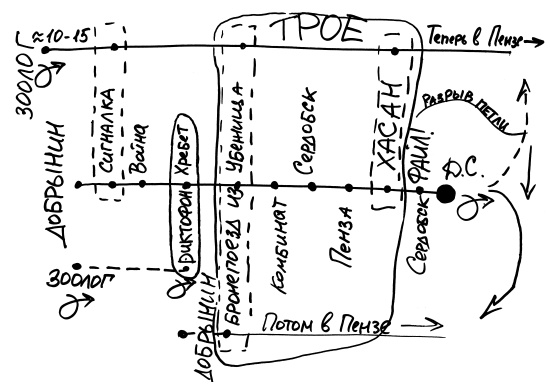 ТРОЕ
≈10-15
Теперь в Пензе
ЗООЛОГ
СИГНАЛКА
Война
Хребет
ДИКТОФОН
БРОНЕПОЕЗД ИЗ УБЕЖИЩА
Сердобск
КОМБИНАТ
ПЕНЗА
ХАСАН
РАЗРЫВ ПЕТЛИ
СЕРДОБСК РАИЛ!
Д.С.
ДОБРЫНИН
ЗООЛОГ
ДОБРЫНИН
Потом в Пензе